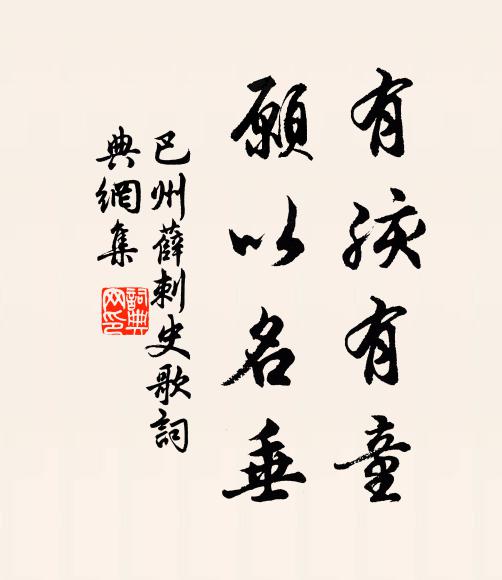 有孩有童
願以名垂
巴州薛刺史歌詞
典網集
詞典
网印